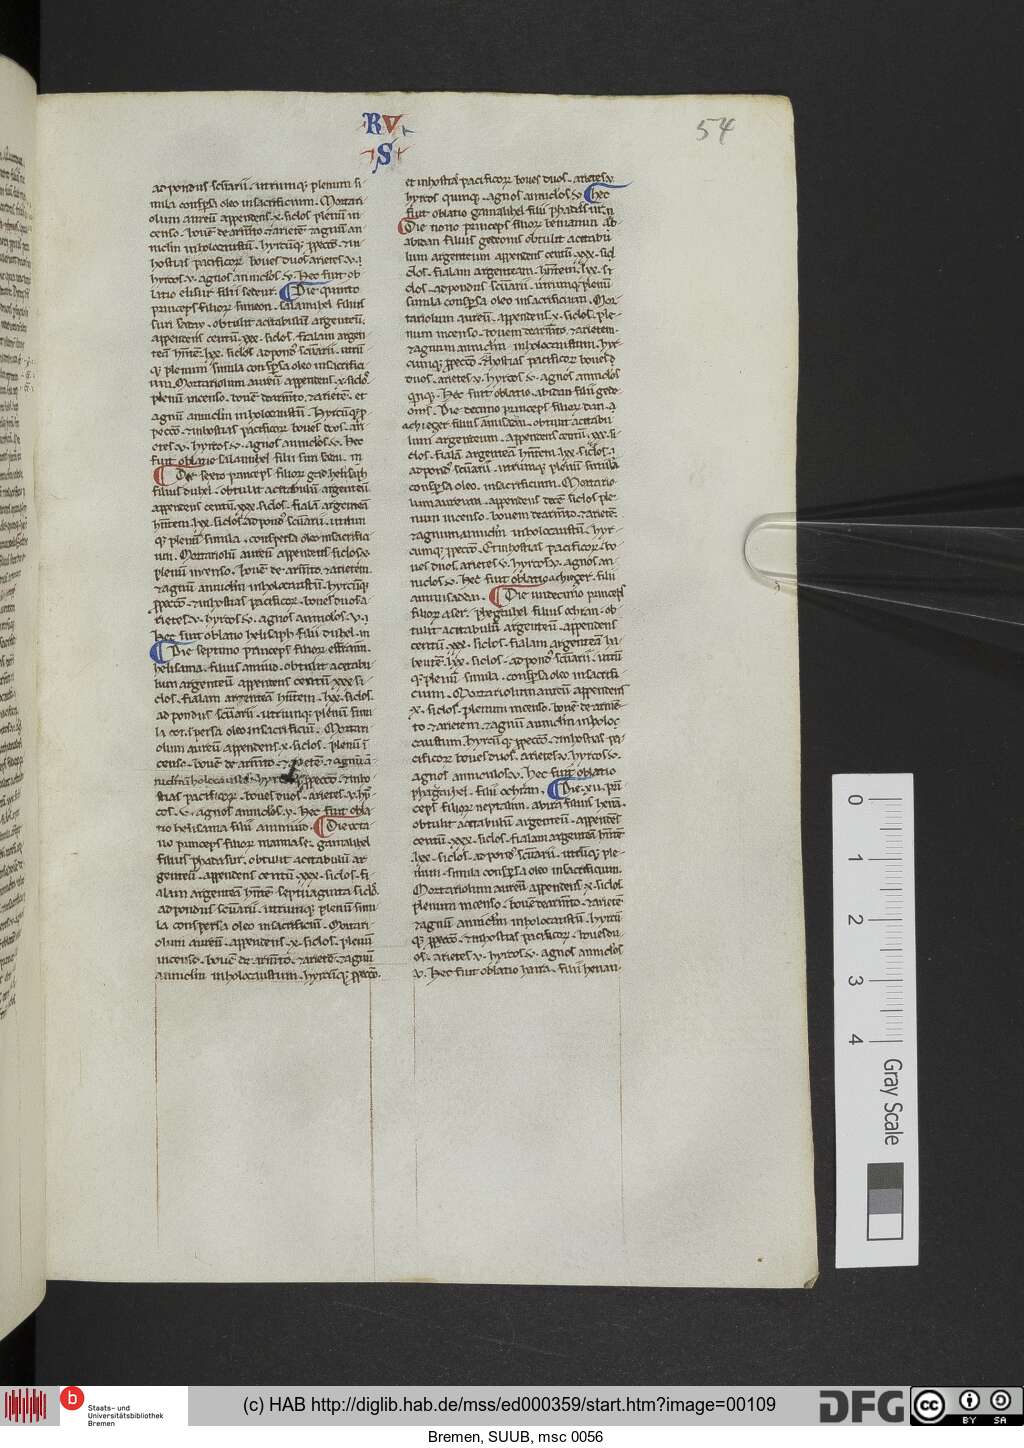 RV
S
54
ad pondus scuarii. utrumq; plenum si
mila conspsa oleo in sacrificium. Mortari
olum aureu appendens x. siclos plenu in
censo. boue de armto & ariete & agnu an
niclm in holocaustu. hyrcuq; p pecco. & in
hostias pacificor boues duos arietes v.
hyrcos v. agnos anniclos v. hec fuit ob
latio elisur filii sedeur. Die quinto
princeps filior simeon. salamihel filius
suri saday. obtulit acitabulu argenteu.
appendens centu. xxx. siclos. fialam argen
tea hnte. lxx. siclos ad pond scuarii. utru
q; plenum simula conspsa oleo in sacrifici
um. Mortariolum aureu appendens. x. siclos.
plenu incenso. boue de armto. & ariete. et
agnu anniclm in holocaustu. Hyrcuq; p
pecco. & in hostias pacificor boues duos. ari
etes v. hyrcos v. agnos anniclos v. hec
fuit oblatio salamihel filii suri sadai. in
Die sexto princeps filior gad helisaph
filius duhel. obtulit acitabulu argenteu
appendens centu. xxx. siclos. fiala argentea
hntem. lxx. siclos ad pond scuarii. utrum
q; plenu simila. conspersa oleo in sacrifici
um. Mortariolu aureu appendens siclos x.
plenu incenso. boue de armto. & arietem.
& agnu anniclm in holocaustu. hyrcuq;
p pecco. & in hostias pacificor. boues duos a
rietes v. hyrcos v. agnos anniclos. v.
Hec fuit oblatio helisaph filii duhel. in
Die septimo princeps filior effraim.
helisama. filius amiud. obtulit acitabu
lum argenteu appendens centu xxx si
clos. fialam argentea hntem. lxx. siclos.
ad pondus scuarii. utrumq; plenu simi
la conspersa oleo in sacrificiu. Mortari
olum aureu. appendens x. siclos. plenu i
censo. boue de armto. & ariete. & agnu a
niclm in holocaustu. hyrcuq; p pecco. & in ho
stias pacificor. boues duos. arietes v. hyr
cos. v. agnos anniclos. v. hec fuit obla
tio helisama filii ammiud. Die octa
uo princeps filior manasse. gamalihel
filius phadasur. obtulit acitabulu ar
genteu. appendens centu. xxx. siclos. fi
alam argentea hnte. septuaginta siclos.
ad pondus scuarii. utrumq; plenu simi
la conspersa oleo in sacrificiu. Mortari
olum aureu. appendens. x. siclos. plenu
incenso. boue de armto. & ariete. & agnu
anniclm in holocaustum. hyrcuq; p pecco.
et in hostia pacificor boues duos. arietes v.
hyrcos quinq;. agnos anniclos v. Hec
fuit oblatio gamalihel filii phadasur. in
Die nono princeps filior beniamin ab
abidan filius gedeonis obtulit acitabu
lum argenteum appendens centu xxx. sic
clos. fialam argenteam hntem. lxx. si
clos. ad pondus scuarii. utrumq; plenu
simila conspsa oleo in sacrificium. Mor
tariolum aureu. appendens. x. siclos. ple
num incenso. bouem de armto. & arietem.
& agnum anniclm in holocaustum. hyr
cumq; p pecco. & hostias pacificor boues d
duos. arietes v. hyrcos v. agnos anniclos
qnq;. Hec fuit oblatio. abidan filii gede
onis. Die decimo princeps filior dan.
achiezer filius amisadai. obtulit acitabu
lum argenteum. appendens centu. xxx. si
clos. fiala argentea hntem lxx. siclos.
ad pond scuarii. utrumq; plenu simila
conspsa oleo. in sacrificium. Mortario
lum aureum. appendens dece siclos ple
num incenso. bouem de armto. & ariete
& agnum anniclm in holocaustu. hyr
cumq; p pecco. Et in hostias pacificor. bo
ues duos. arietes v. hyrcos v. agnos an
niclos v. hec fuit oblatio achiezer. filii
amiusadan. Die undecimo princeps
filior aser. phegiahel filius ochran. ob
tulit acitabulu argenteu. appendens
centu. xxx. siclos. fialam argentea ha
bente. lxx. siclos. ad pond scuarii. utru
q; plenu. simila. conspsa oleo in sacrifi
cium. Mortariolum aureu appendens
x. siclos. plenum incenso. boue de arme
to. & arietem. & agnu anniclm in holo
caustum. hyrcuq; p pecco. & in hostias pa
cificor boues duos. arietes v. hyrcos v.
agnos anniculos v. hec fuit oblatio
phagaihel. filii ochran. Die. xii. prin
ceps filior neptalim. ahira filius hena.
obtulit acitabulu argenteu. appendens
centu. xxx. siclos. fialam argentea hnte
lxx. siclos. ad pond scuarii. utruq; ple
num. simila conspsa oleo in sacrificium.
Mortariolum aureu appendens x. siclos.
plenum incenso. boue de armto. & ariete
& agnu anniclm in holocaustu. hyrcu
q; p pecco. & in hostias pacificor. boues du
os. arietes v. hyrcos v. agnos anniclos
v. Hec fuit oblatio haira. filii henan.
0 1 2 3 4
Gray Scale
Staats- und
Universitätsbibliothek
Bremen
(c) HAB http://diglib.hab.de/mss/ed000359/start.htm?image=00109
DFG
cc BY SA
Bremen, SUUB, msc 0056